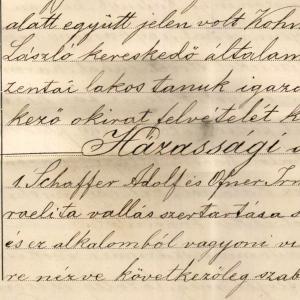 alatt együtt jelen volt Kohn
László kereskedő általam
zentai lakos tanuk igazo
kező okirat felvételét k
Házassági
1 Schäffer Adolf és Ofner Irm
raelita vallás szertartása s
és ez alkalomból vagyoni vi
re nézve következőleg szab